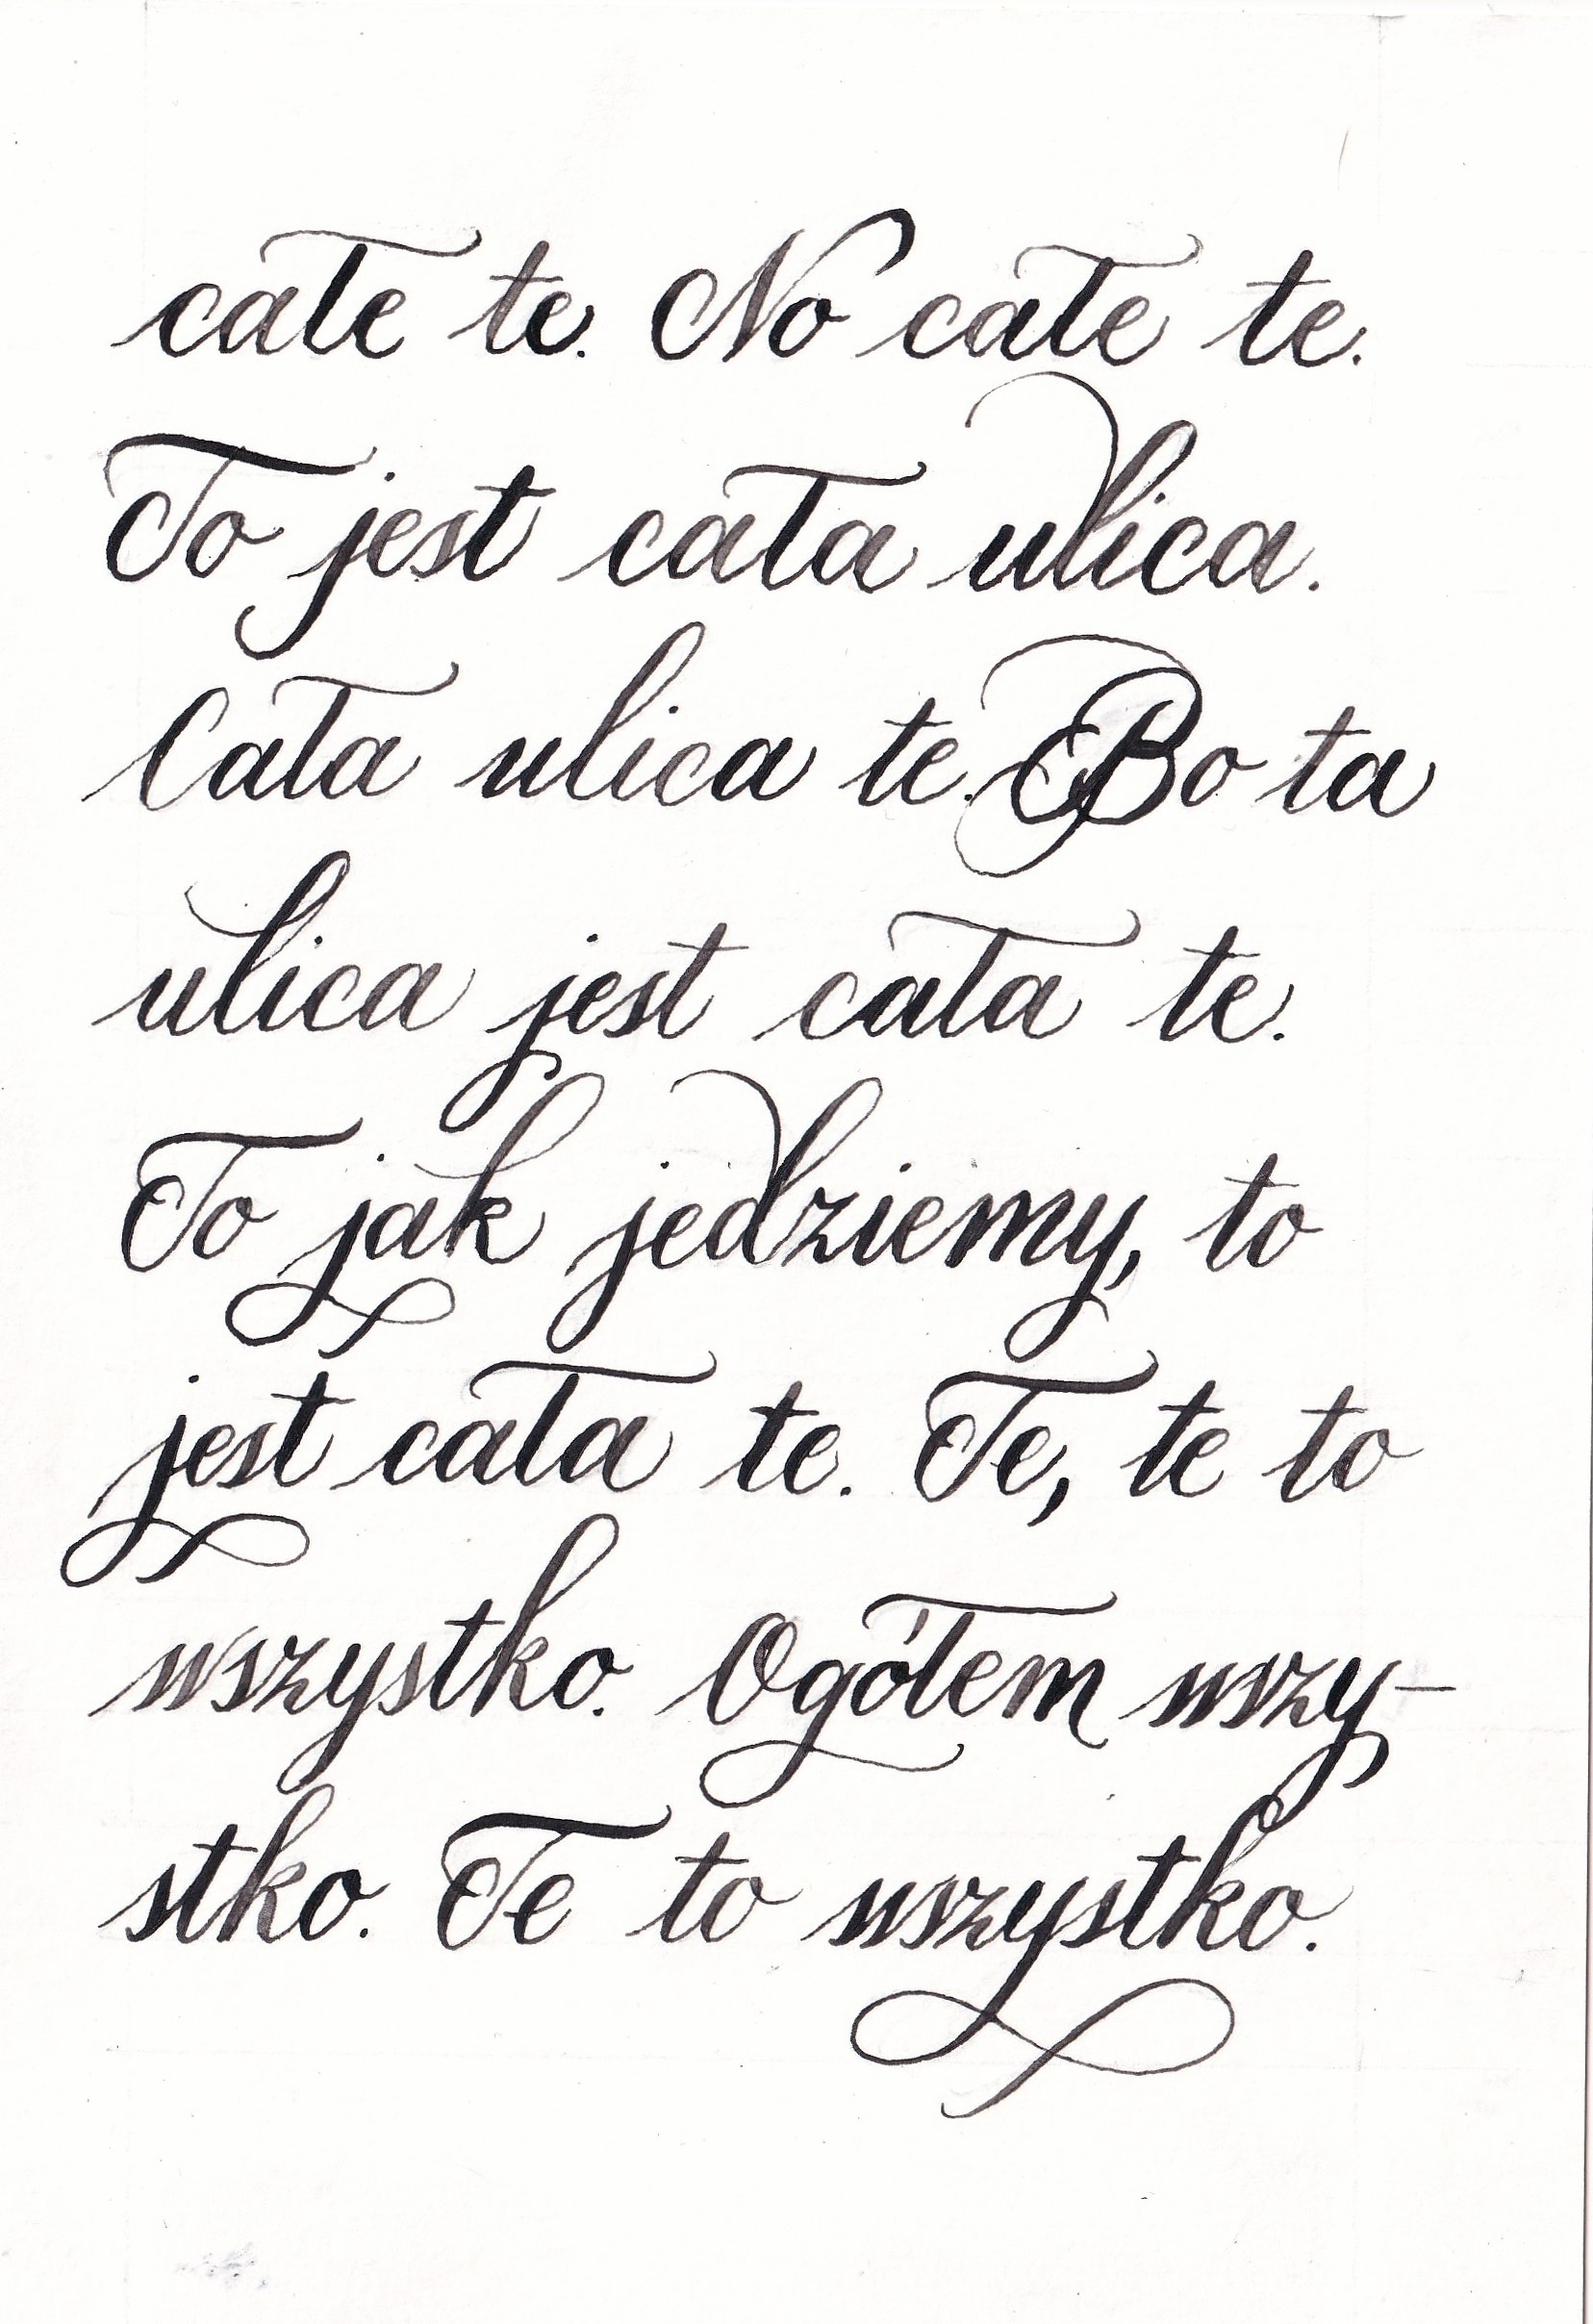 całe te. No całe te.
To jest cała ulica.
Cała ulica te. Bo ta
ulica jest cała te.
To jak jedziemy, to
jest cała te. Te, te to
wszystko. Ogółem wszy-
stko. Te to wszystko.